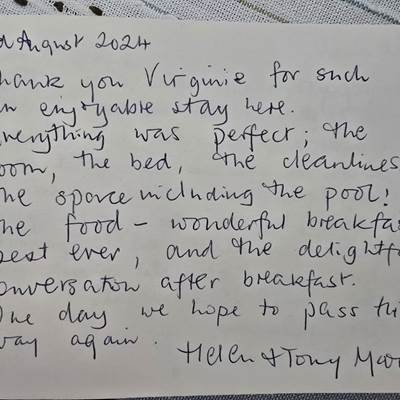 August 2024
thank you Virginie for such
an enjoyable stay here.
Everything was perfect; the
room, the bed, the cleanliness
the space including the pool!
the food - wonderful breakfast
best ever, and the delightful
conversation after breakfast.
One day we hope to pass this
way again.
Helen & Tony